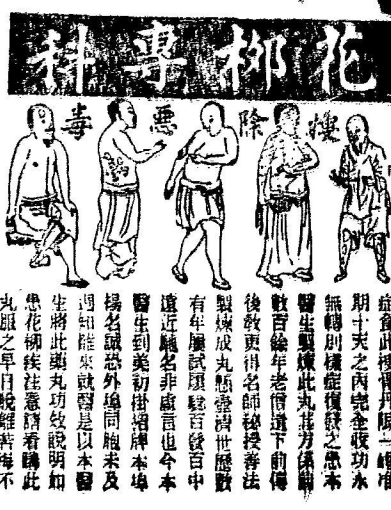 花柳專科
搜除惡毒
症食此搜骨丹
期十天之內完全收功永
無轉別樣症復發之患本
醫生製煉此丸其方係
數百餘年老僧遺下前傳
後教更得名師秘授善法
製煉成丸懸壺濟世歷數
有年屢試屢驗百發百中
遠近馳名非虛言也今本
醫生到美初掛招牌本埠
揚名誠恐外埠同胞未及
週知來就醫是以本醫
生將此藥丸功效說明如
患花柳疾注意請看購此
丸服之早日脫離苦海不